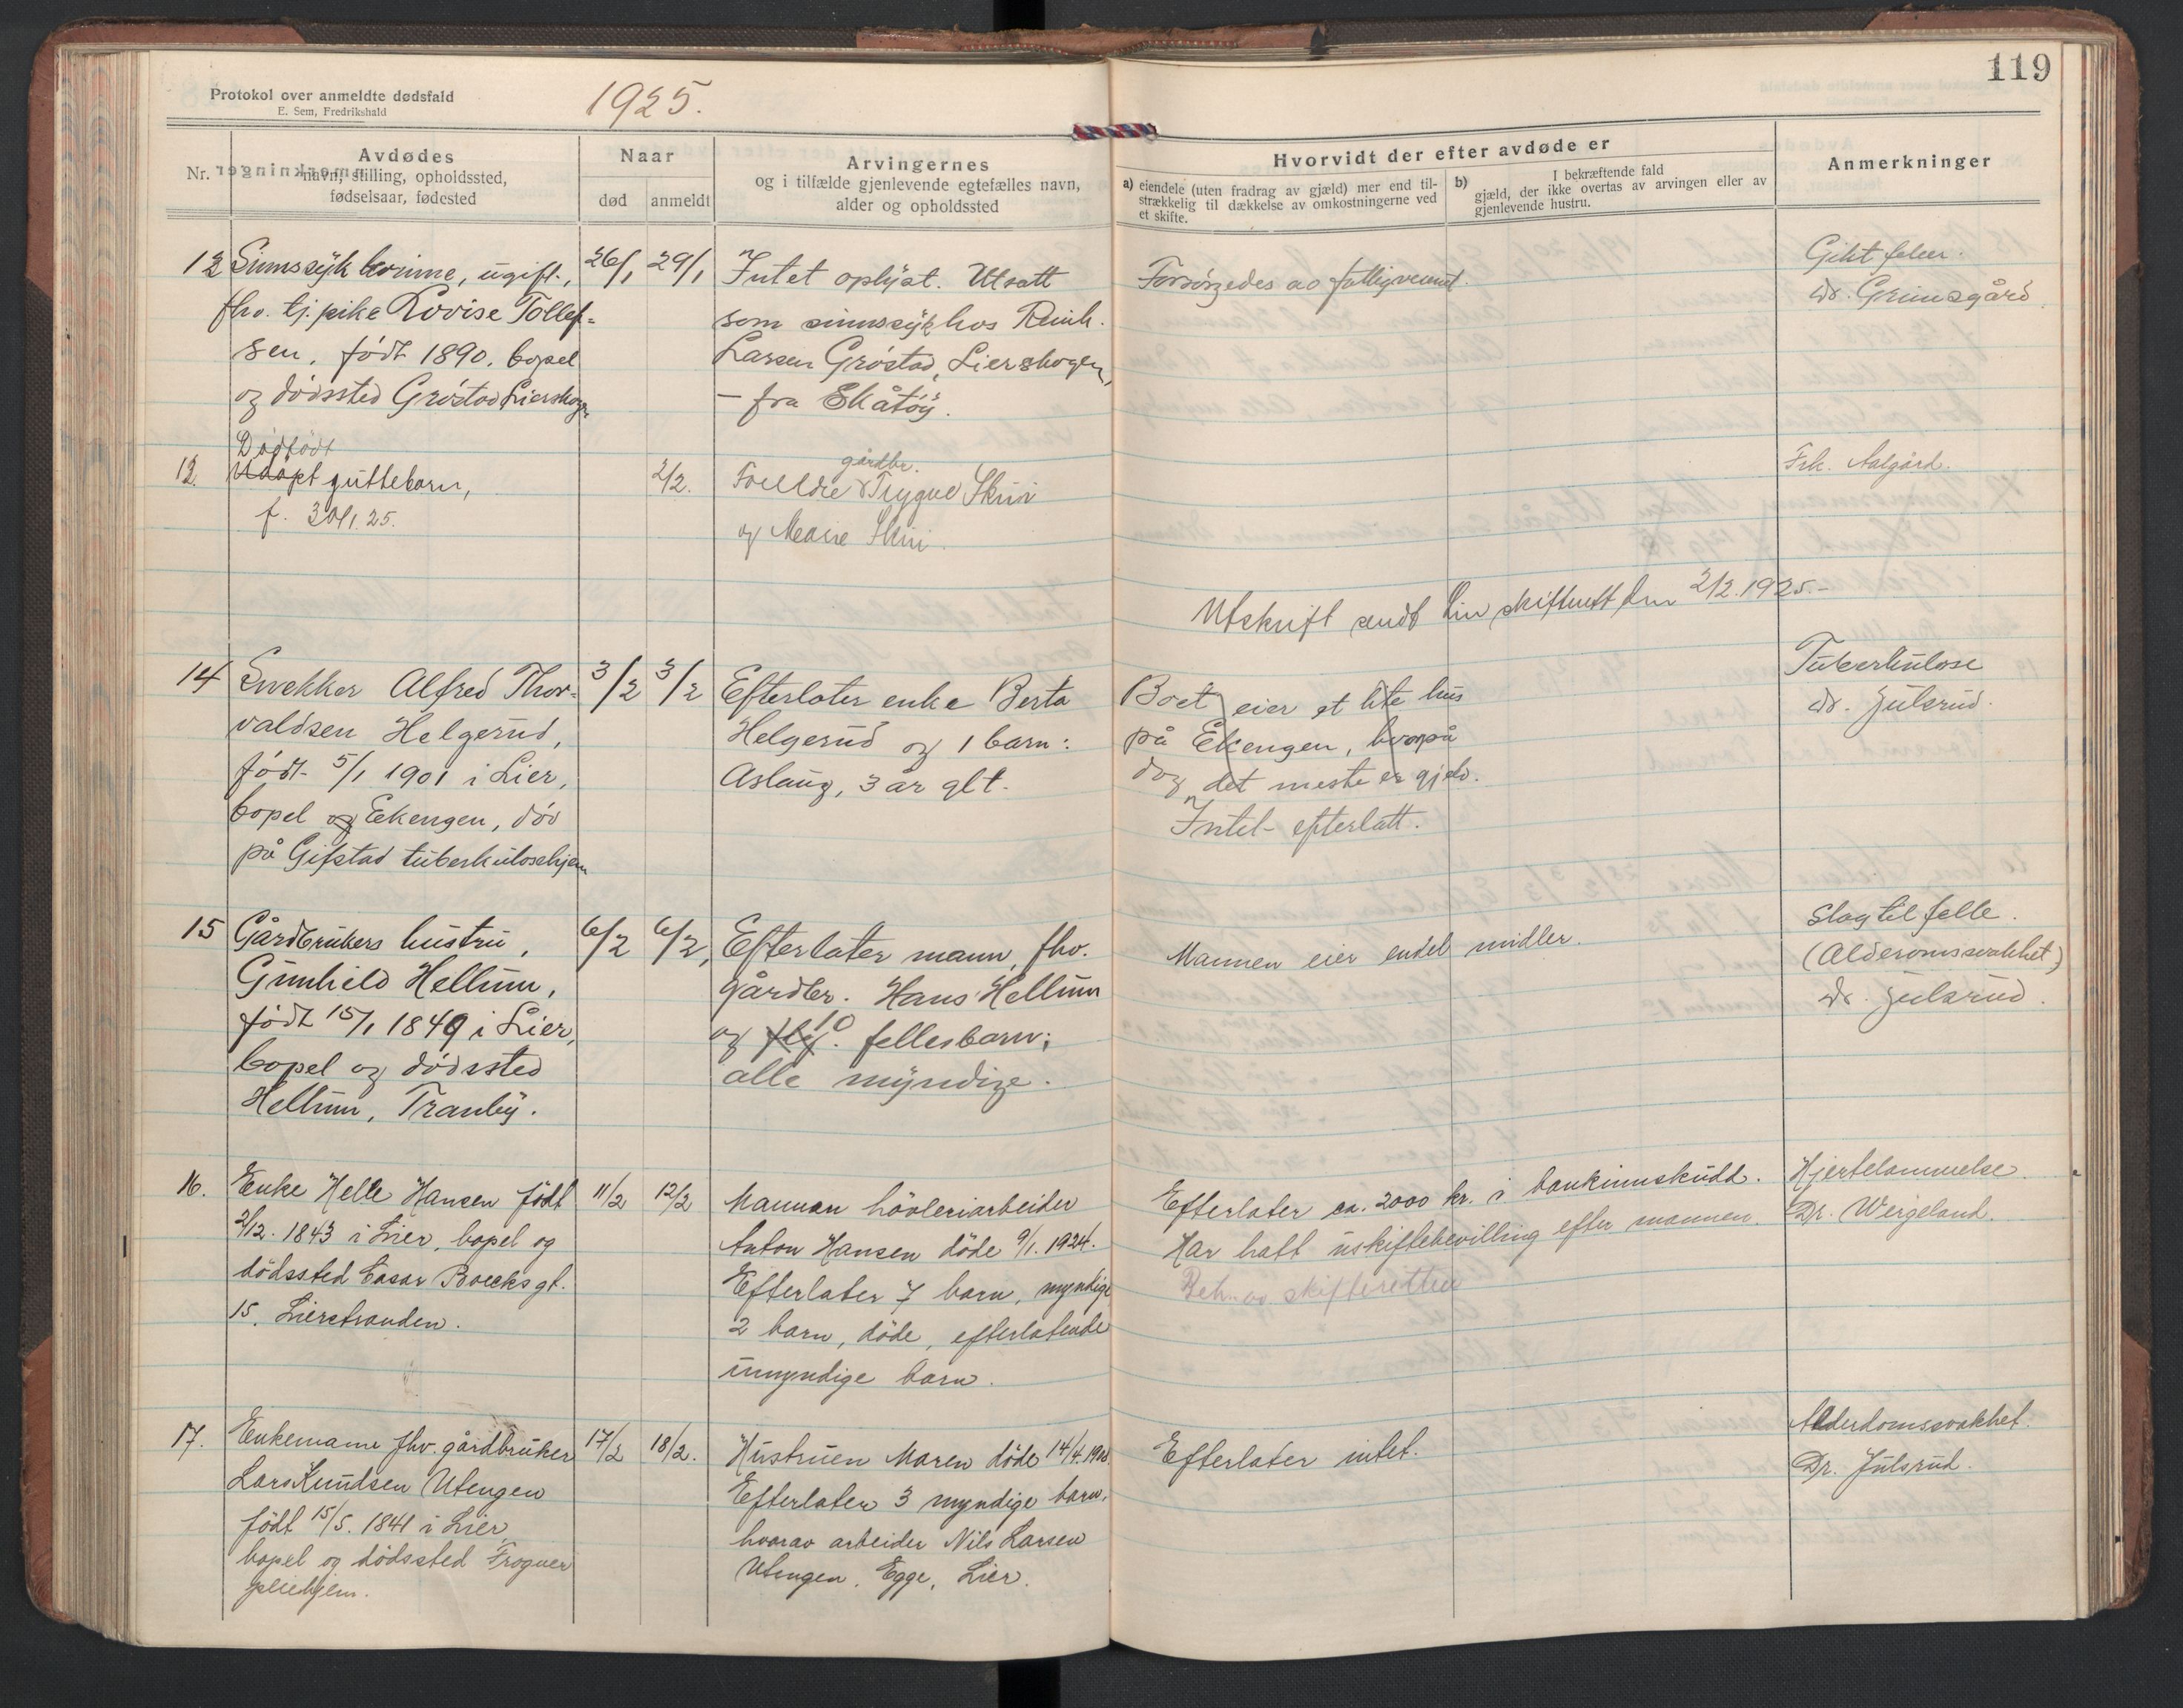 119
Protokol over anmeldte dødsfald
E. Sem, Fredrikshald
1925.
Nr.
Avdødes
navn, stilling, opholdssted,
fødselsaar, fødested
Naar
død
anmeldt
Arvingernes
og i tilfælde gjenlevende egtefælles navn,
alder og opholdssted
Hvorvidt der efter avdøde er
a) eiendele (uten fradrag av gjæld) mer end til-
strækkelig til dækkelse av omkostningerne ved
et skifte.
b) I bekræftende fald
gjæld, der ikke overtas av arvingen eller av
gjenlevende hustru.
Anmerkninger
12
Sinnssyk kvinne, ugift,
fhv. tj. pike Lovise Tollef-
sen, født 1890, bopel
og dødssted Grøstad Lierskogen
26/1
29/1
Intet oplyst. Utsatt
som sinnssyk hos Reinh.
Larsen Grøstad, Lierskogen,
- fra Skåtøy.
Forsørgedes av fattigvesenet.
Dr. Grimsgård.
12.
Dødfødt
Udøpt guttebarn,
f. 30/1.25.
2/2.
gårdbr.
Foreldre Trygve Skiri
og Marie Skiri.
Frk. Aalgård.
Utskrift sendt Lier skifterett den 2/2.1925.-
14
Snekker Alfred Thor-
valdsen Helgerud,
født 5/1 1901 i Lier,
bopel og Eekengen, død
på Gifstad tuberkulosehjem
3/2
3/2
Efterlater enke Berta
Helgerud og 1 barn:
Aslaug, 3 år glt.
Boet eier et lite hus
på Ekengen, hvorpå
dog det meste er gjeld.
Intet efterlatt.
Tuberkulose
dr. Julsrud.
15
Gårdbrukers hustru,
Gunhild Hellum,
født 15/1 1849 i Lier,
bopel og dødssted
Hellum, Tranby.
6/2
6/2,
Efterlater mann, fhv.
gårdbr. Hans Hellum
og 10 fellesbarn;
alle myndige.
Mannen eier endel midler.
Slagtilfelle.
(Alderomssvakhet)
dr. Julsrud.
16.
Enke Helle Hansen født
2/12. 1843 i Lier, bopel og
dødssted Cæsar Boecks gt.
15. Lierstranden.
11/2
12/2
Mannen høvleriarbeider
Anton Hansen døde 9/1. 1924.
Efterlater 7 barn, myndige
2 barn, døde, efterlatende
umyndige barn.
Efterlater ca. 2000 kr. i bankinnskudd.
Har hatt uskiftebevilling efter mannen.
Beh. av skifteretten
Hjertelammelse.
Dr. Wergeland.
17.
Enkemann fhv. gårdbruker
Lars Knudsen Utengen
født 15/5. 1841 i Lier,
bopel og dødssted Frogner
pleiehjem.
17/2
18/2.
Hustruen Maren døde 14/4.1908.
Efterlater 3 myndige barn,
hvorav arbeider Nils Larsen
Utengen, Egge, Lier.
Efterlater intet.
Alderdomssvakhet.
Dr. Julsrud.